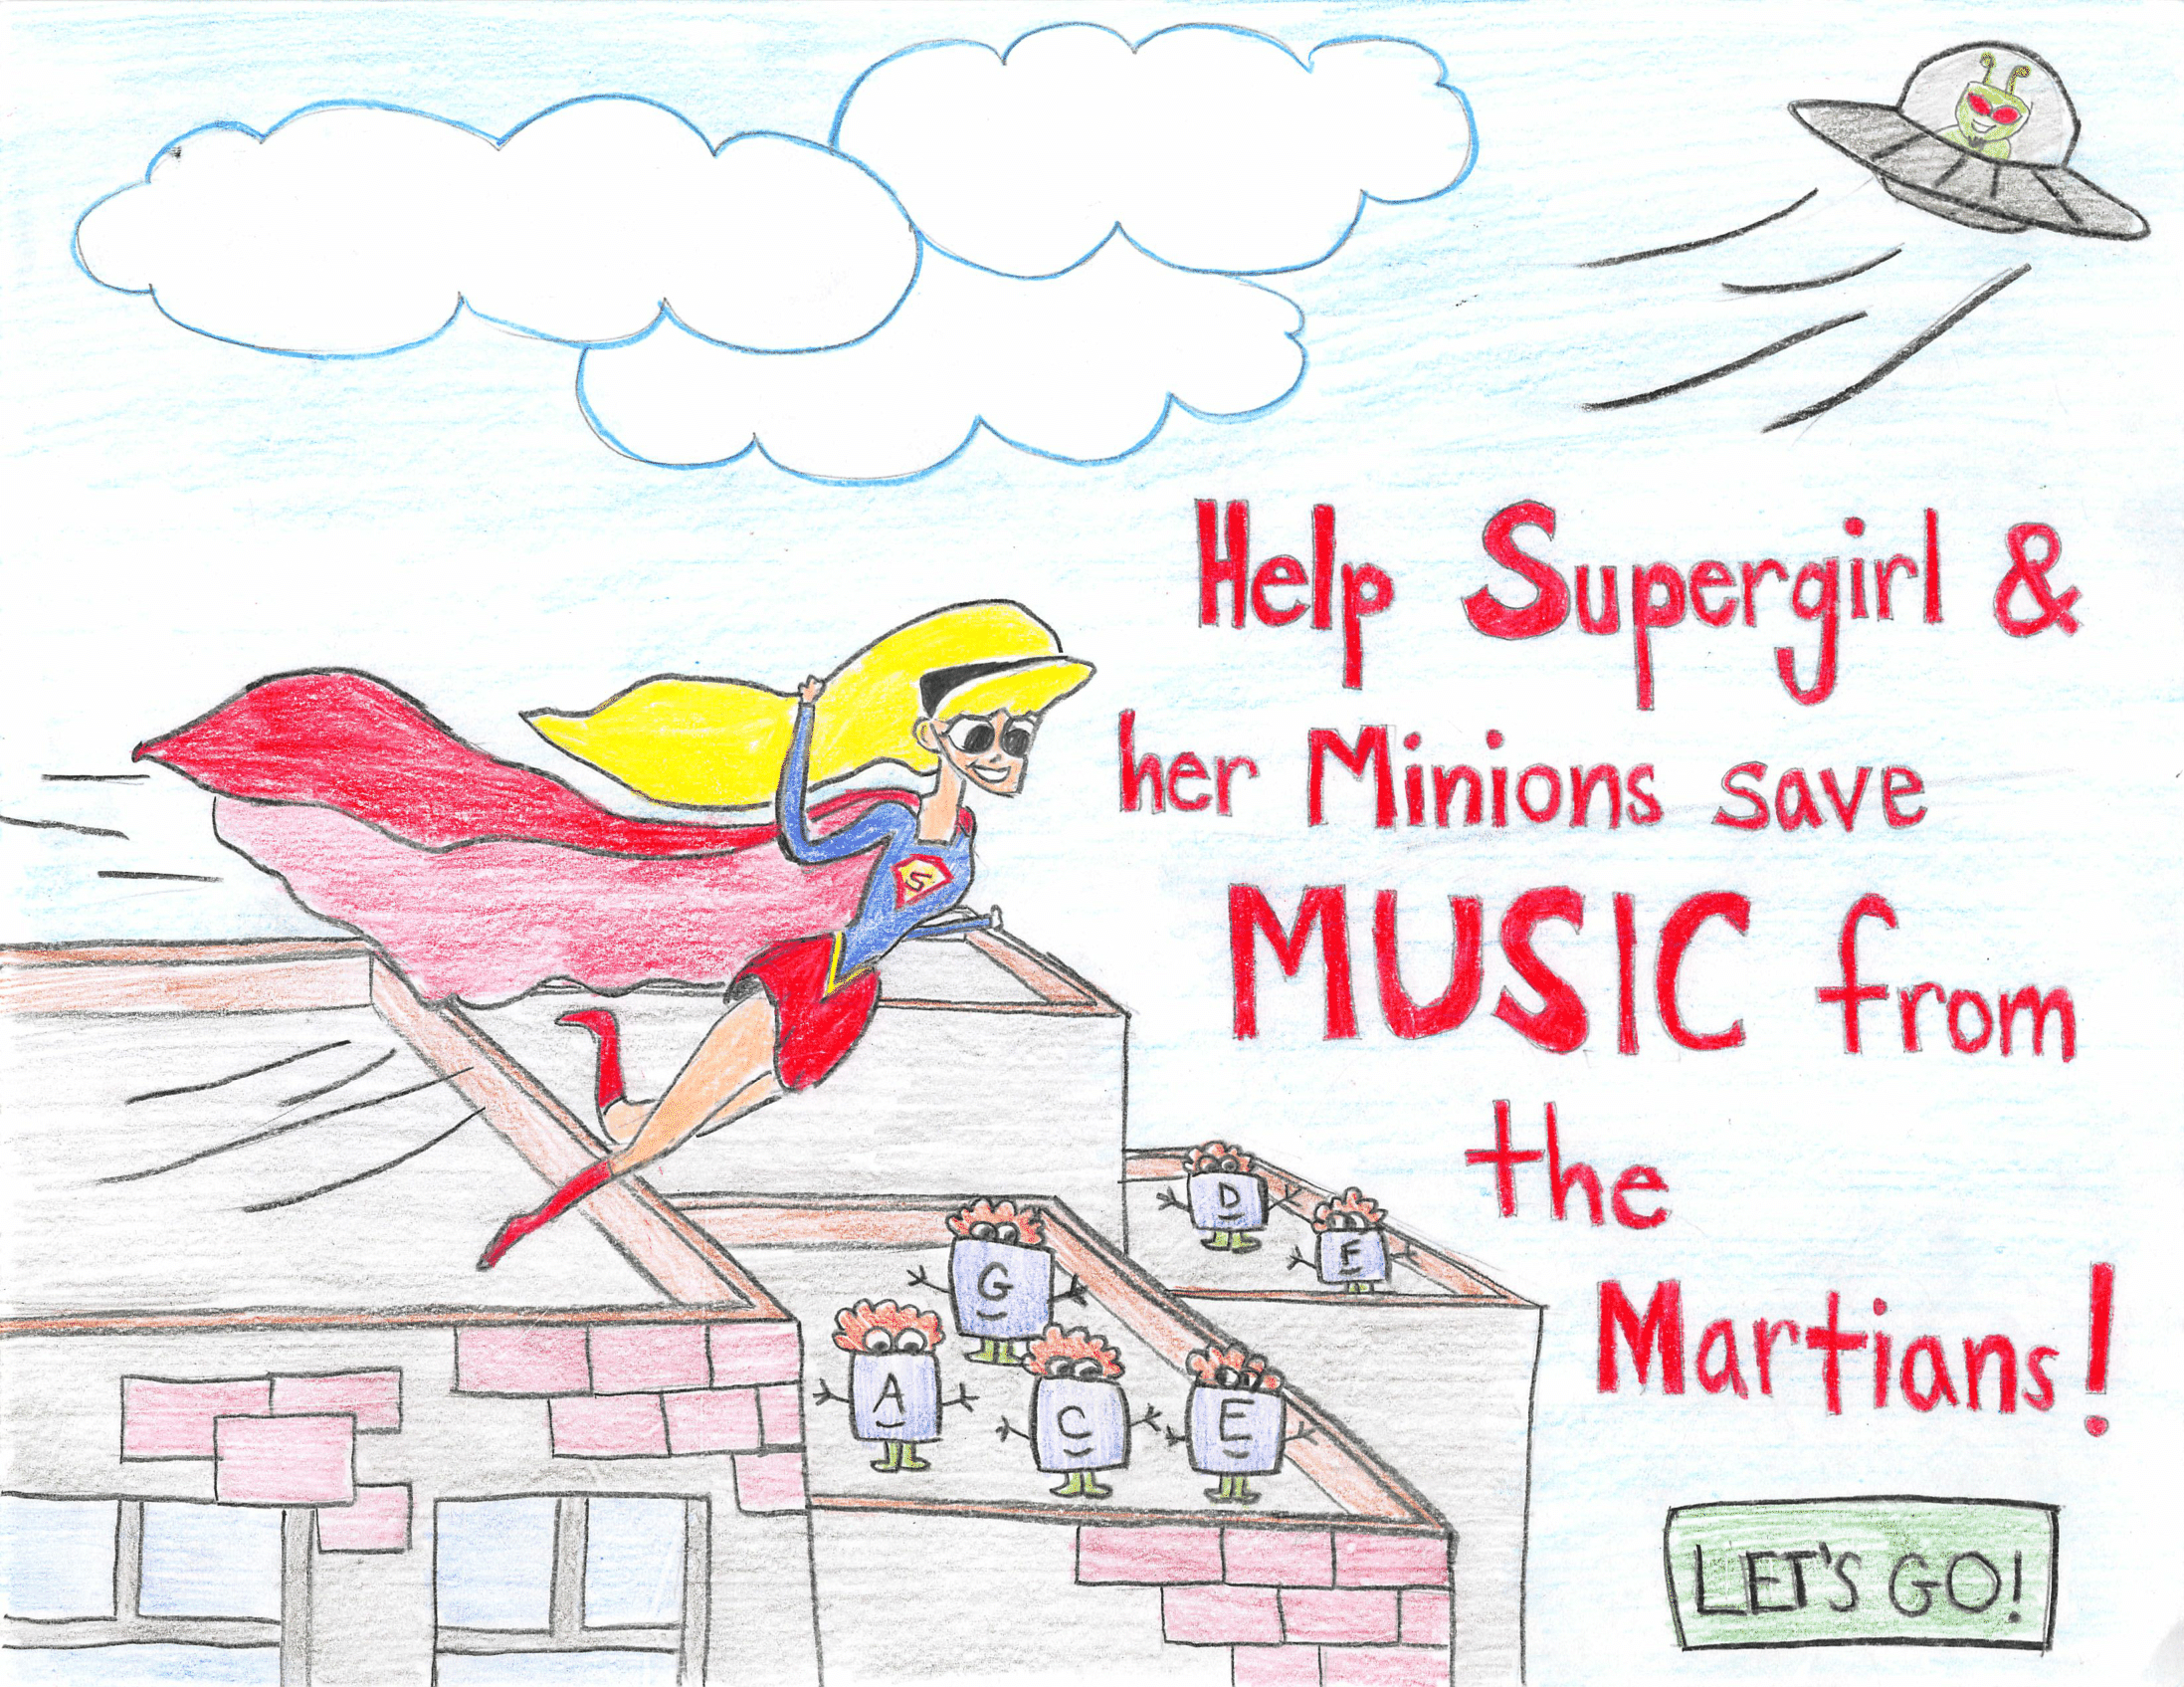 Help Supergirl &
her Minions save
MUSIC from
the
Martians!
S
D
F
G
A
C
E
LET'S GO!